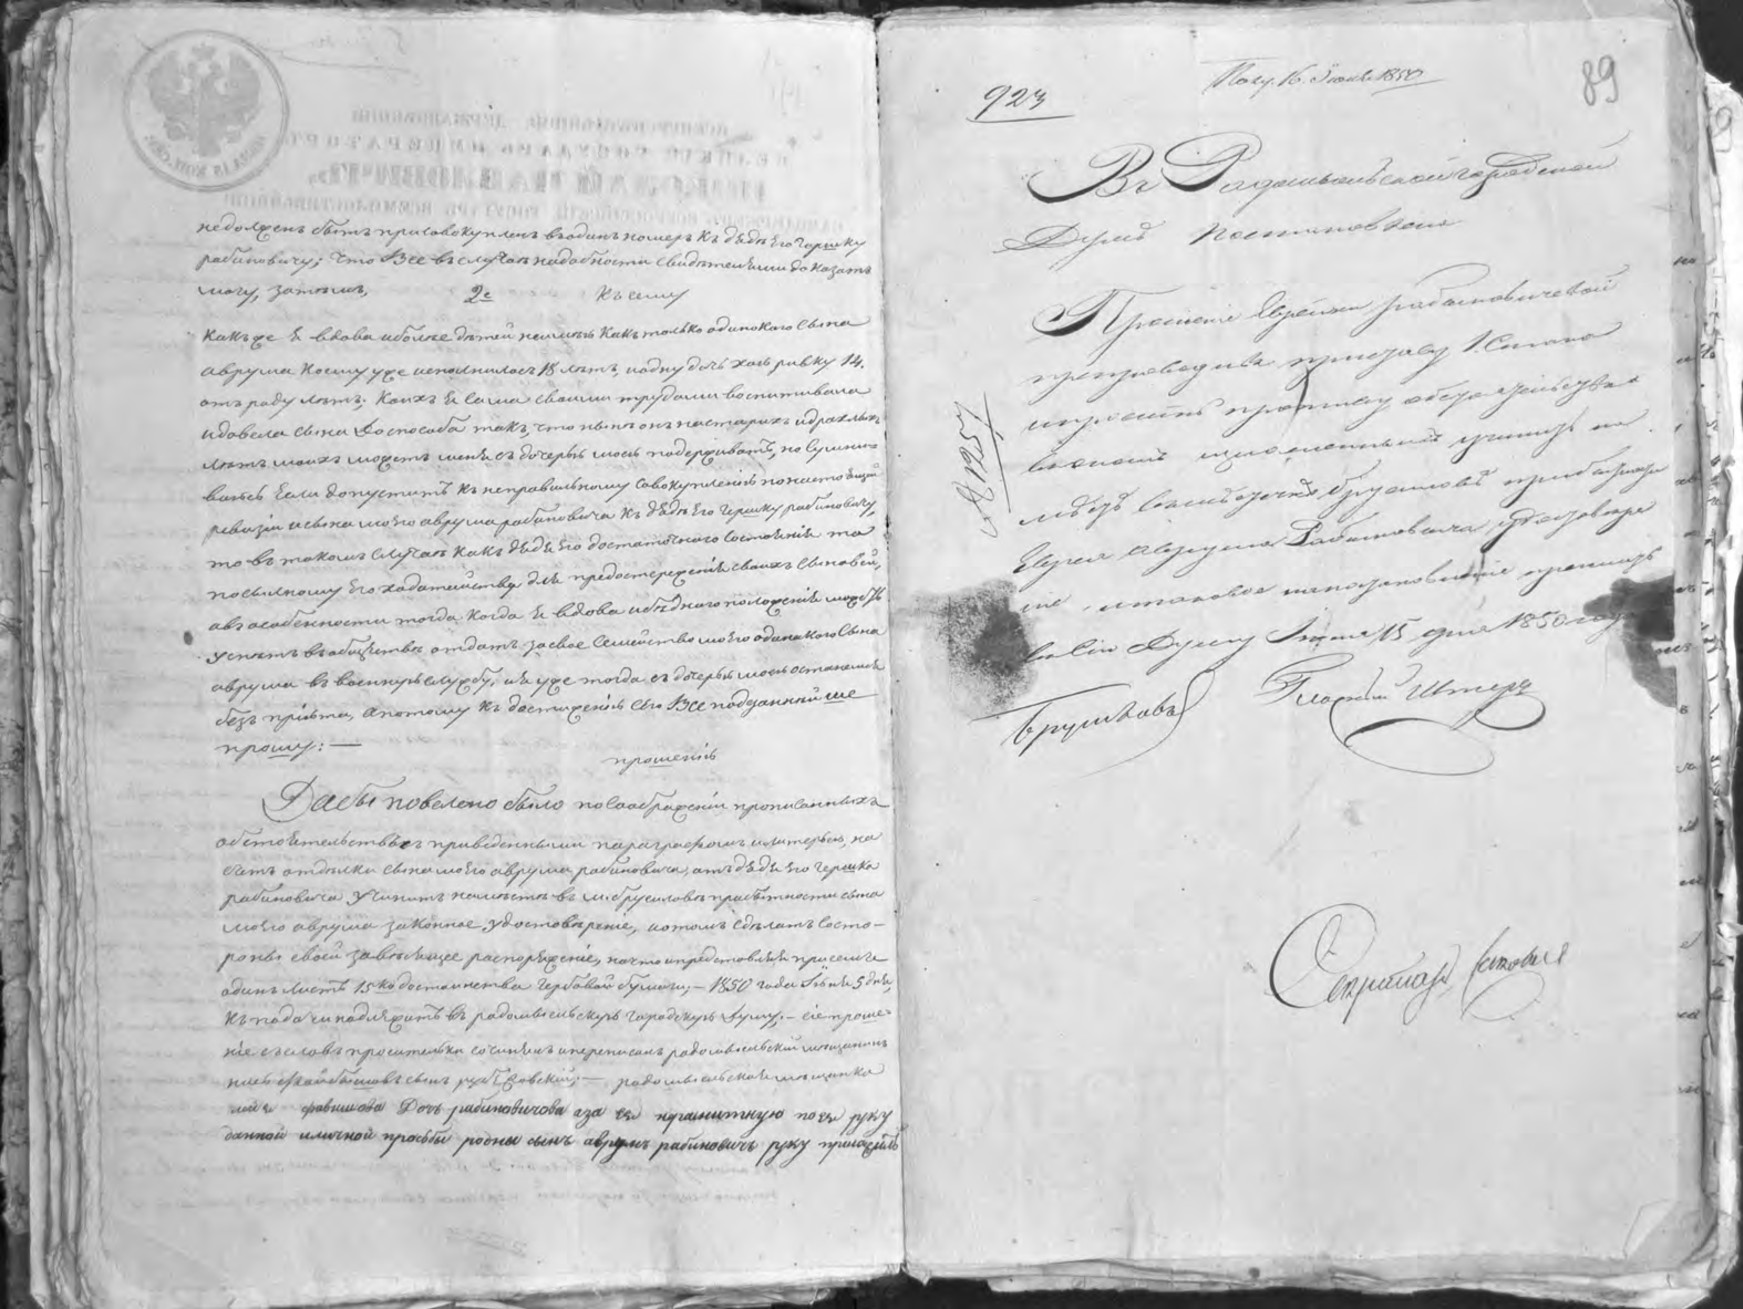 недолженъ быть присовокупленъ водинъ номеръ къ дѣдѣ его Гершку
рабиновичу; что Все въ случаѣ надобности свидѣтелями доказать
могу, затѣмъ,
2е
Къ сему
Какъ же я вдова иболѣе дѣтей неимѣю какъ только одинокого сына
аврума коему уже исполнилось 18 лѣтъ, иодну дочь хаю ривку 14.
отъ роду лѣтъ; коихъ я сама своими трудами воспитывала
идовела сына до способа такъ, что нынѣ онъ настарих идряхлыхъ
лѣтъ моихъ можетъ меня съ дочерью моею подерживать, но
если допустить къ неправильному совокупленію понастоящей
ревизіи исына моего аврума рабиновича къ дѣдѣ его Гершку рабиновичу,
то въ такомъ случаѣ какъ дѣдъ его достаточного состоянія то
посильному его ходатайству для предостереженія своихъ сыновей,
авъ особенности тогда когда я вдова ибѣдного положенія можетъ
успѣть вобществѣ отдать засвое семейство моего одинакого сына
аврума въ военную службу, ия уже тогда съ дочерью моею останемся
безъ пріюта, Апотому къ достиженію сего Все подданнѣйше
прошу: —
прошенію
Дабы повелено было посоображеніи прописанныхъ
обстоятельствъ съ приведенными параграфомъ илитерою, на
счетъ отдѣлки сына моего аврума рабиновича, отъ дѣди его Гершка
рабиновича Учинить намѣстѣ въ м. брусиловѣ прибытности сына
моего аврума законное удостовѣреніе, ипотомъ сдѣлать состо-
роны своей зависящее распоряженіе, начто ипредставляя присемъ
одинъ листъ 15ко достоинства гербовой бумаги; — 1850 года Іюня 5 дня,
Къ подачи надлежитъ въ радомысльскую городскую думу, — сіе проше-
ніе сословъ просительки сочинялъ ипереписалъ радомысльскій мѣщанинъ
сынъ — радомысльская мѣщанка
Дочь рабиновичова аза ея неграмитную по ея руку
данной иличной прозьбы родны сынъ аврумъ рабиновичъ руку приложилъ
Полу. 16. Іюня 1850
923
89
Въ Радомысльской городской
Думѣ Постановлено
№ 1257
Прошеніе Еврейки рабиновичевой
препроводить приставу 1. Стана
ипросить прописку обстоятельства
учинить на
мѣстѣ въ мѣстечкѣ Брусиловѣ при бытности
Еврея Аврума Рабиновича удостовере
ніе итаковое прислать
въ сію Думу Іюня 15 дня 1850 года
Гласный Штернъ
Секретарь